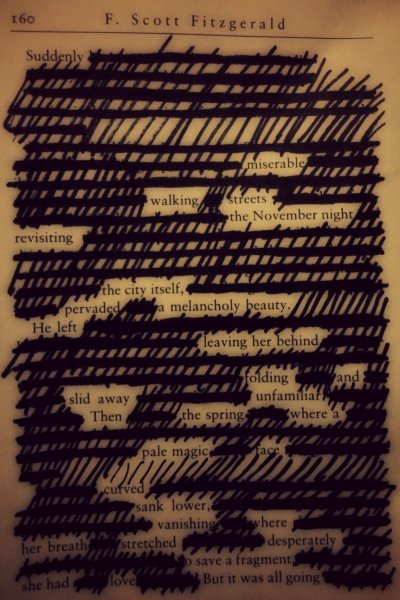 160 F. Scott Fitzgerald
Suddenly
miserable
walking streets
the November night
revisiting
the city itself,
pervaded a melancholy beauty.
He left
leaving her behind
folding and
slid away unfamiliar
Then the spring where a
pale magic face
curved
sank lower,
vanishing where
her breath stretched desperately
to save a fragment,
she had love But it was all going